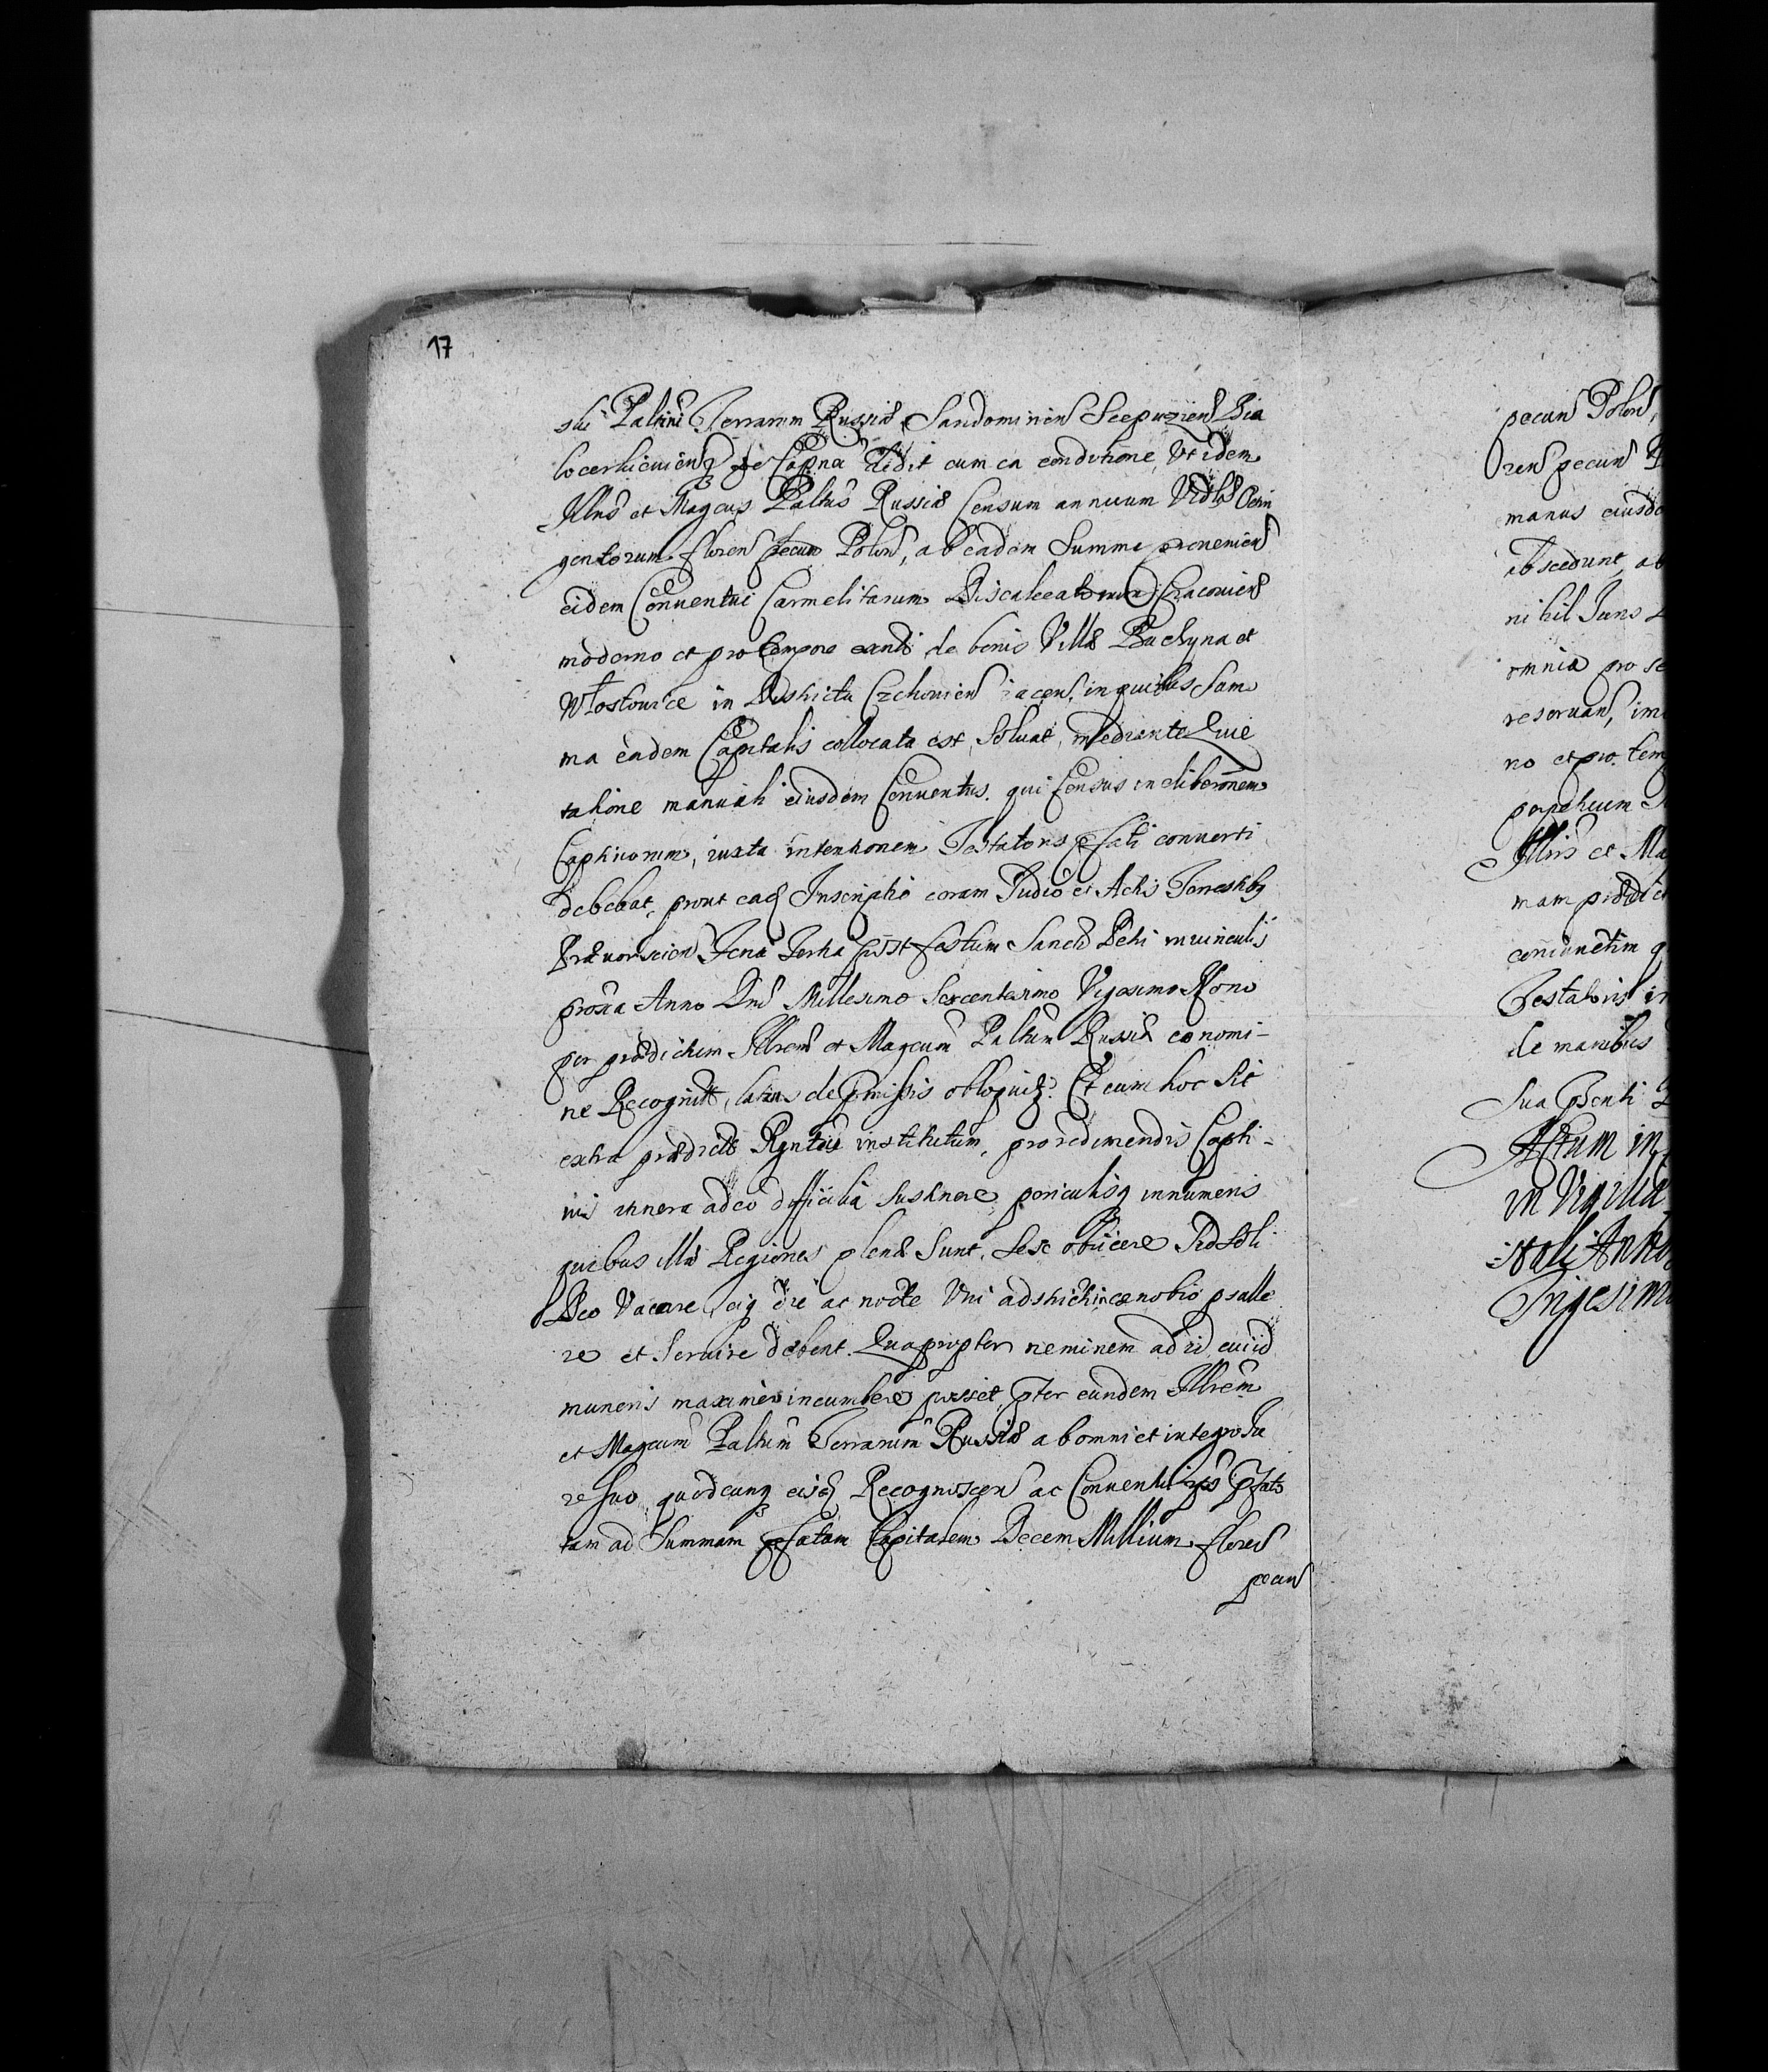 17
ski Paltini Terrarum Russiæ Sandomirien Scepuzien Bia
locerkieuienq Capna dedit cum ea conditione, Ut idem
Illris et Magcus Paltus Russiæ Censum annuum Vidlt Octin
gentorum floren pecun Polon, ab eadem Summa proueniens
eidem Conuentui Carmelitarum Discalceatorum Cracouien
moderno et pro tempore exnti de bonis Villæ Pachyna et
Włostowice in Districtu Czchouien iacen, in quibus Sum
ma eadem Capitalis collocata est, Soluat, mediante Quie
tatione manuali eiusdem Conuentus. qui Census in eliberõnem
Captiuorum, iuxta intentionem Testatoris pfati conuerti
debebat, prout eadq Inscriptio coram Iudio et Actis Terrestribq
Feria Tertia post festum Sancti Petri in vinculis
proxa Anno Dni Millesimo Sexcentesimo Vigesimo Nono
per prædictum Illrem et Magcum Paltum Russiæ eo nomi-
ne Recognit, latius de pmissis obloquitr. Et cum hoc sit
extra prædictæ institutum, pro redimendis Capti-
uis itinera adeo difficilia sustinere, periculisq innumeris
quibus illæ Regiones plenæ sunt, sese obiicere Sed soli
Deo Vacare, eiq die ac nocte Uni adstricti cænobio psalle
re et Seruire debent. Quapropter neminem ad id, cui id
muneris maxime incumbere posset, pter eundem Illrem
et Magcum Paltum Terrarum Russiæ ab omni et integro Iu
re suo, quodcunq eisdq Recognoscen ac Conuentui pfato
tam ad Summam pfatam Capitalem Decem Millium floren
pecun
pecun Polon,
ren pecun P
manus eiusde
abscedunt, ab
nihil Iuris
omnia pro se
reseruan, im
no et pro tem
perpetuum
Illris et Ma
mam prædict
coniunctim q
Testatoris in
de manibus
Sua psenti
Actum in
in Vigilia
stoli Anno
Trigesimo